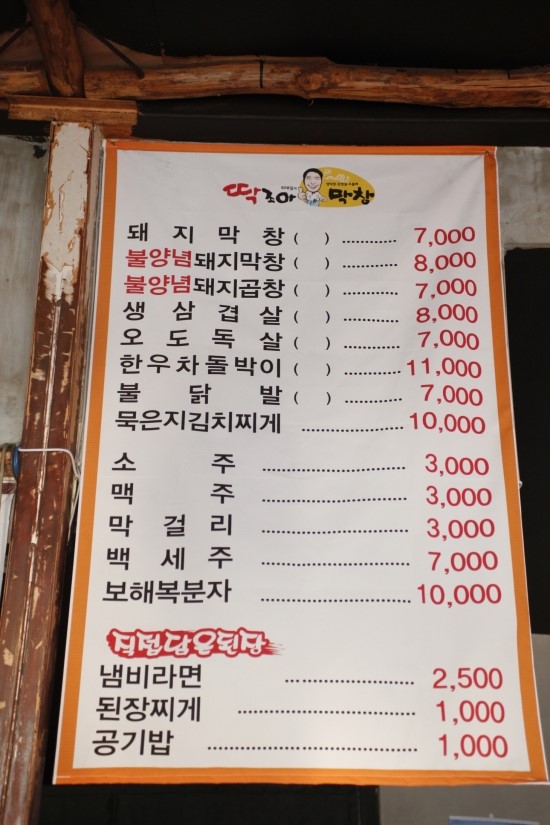 딱조아 막창
돼지막창 ( ) ............ 7,000
불양념돼지막창 ( ) ............ 8,000
불양념돼지곱창 ( ) ............ 7,000
생삼겹살 ( ) ............ 8,000
오도독살 ( ) ............ 7,000
한우차돌박이 ( ) ............ 11,000
불닭발 ( ) ............ 7,000
묵은지김치찌게 ...................... 10,000
소주 .............................. 3,000
맥주 .............................. 3,000
막걸리 .............................. 3,000
백세주 .............................. 7,000
보해복분자 .............................. 10,000
직접담은된장
냄비라면 .......................... 2,500
된장찌게 .................................. 1,000
공기밥 ........................................ 1,000